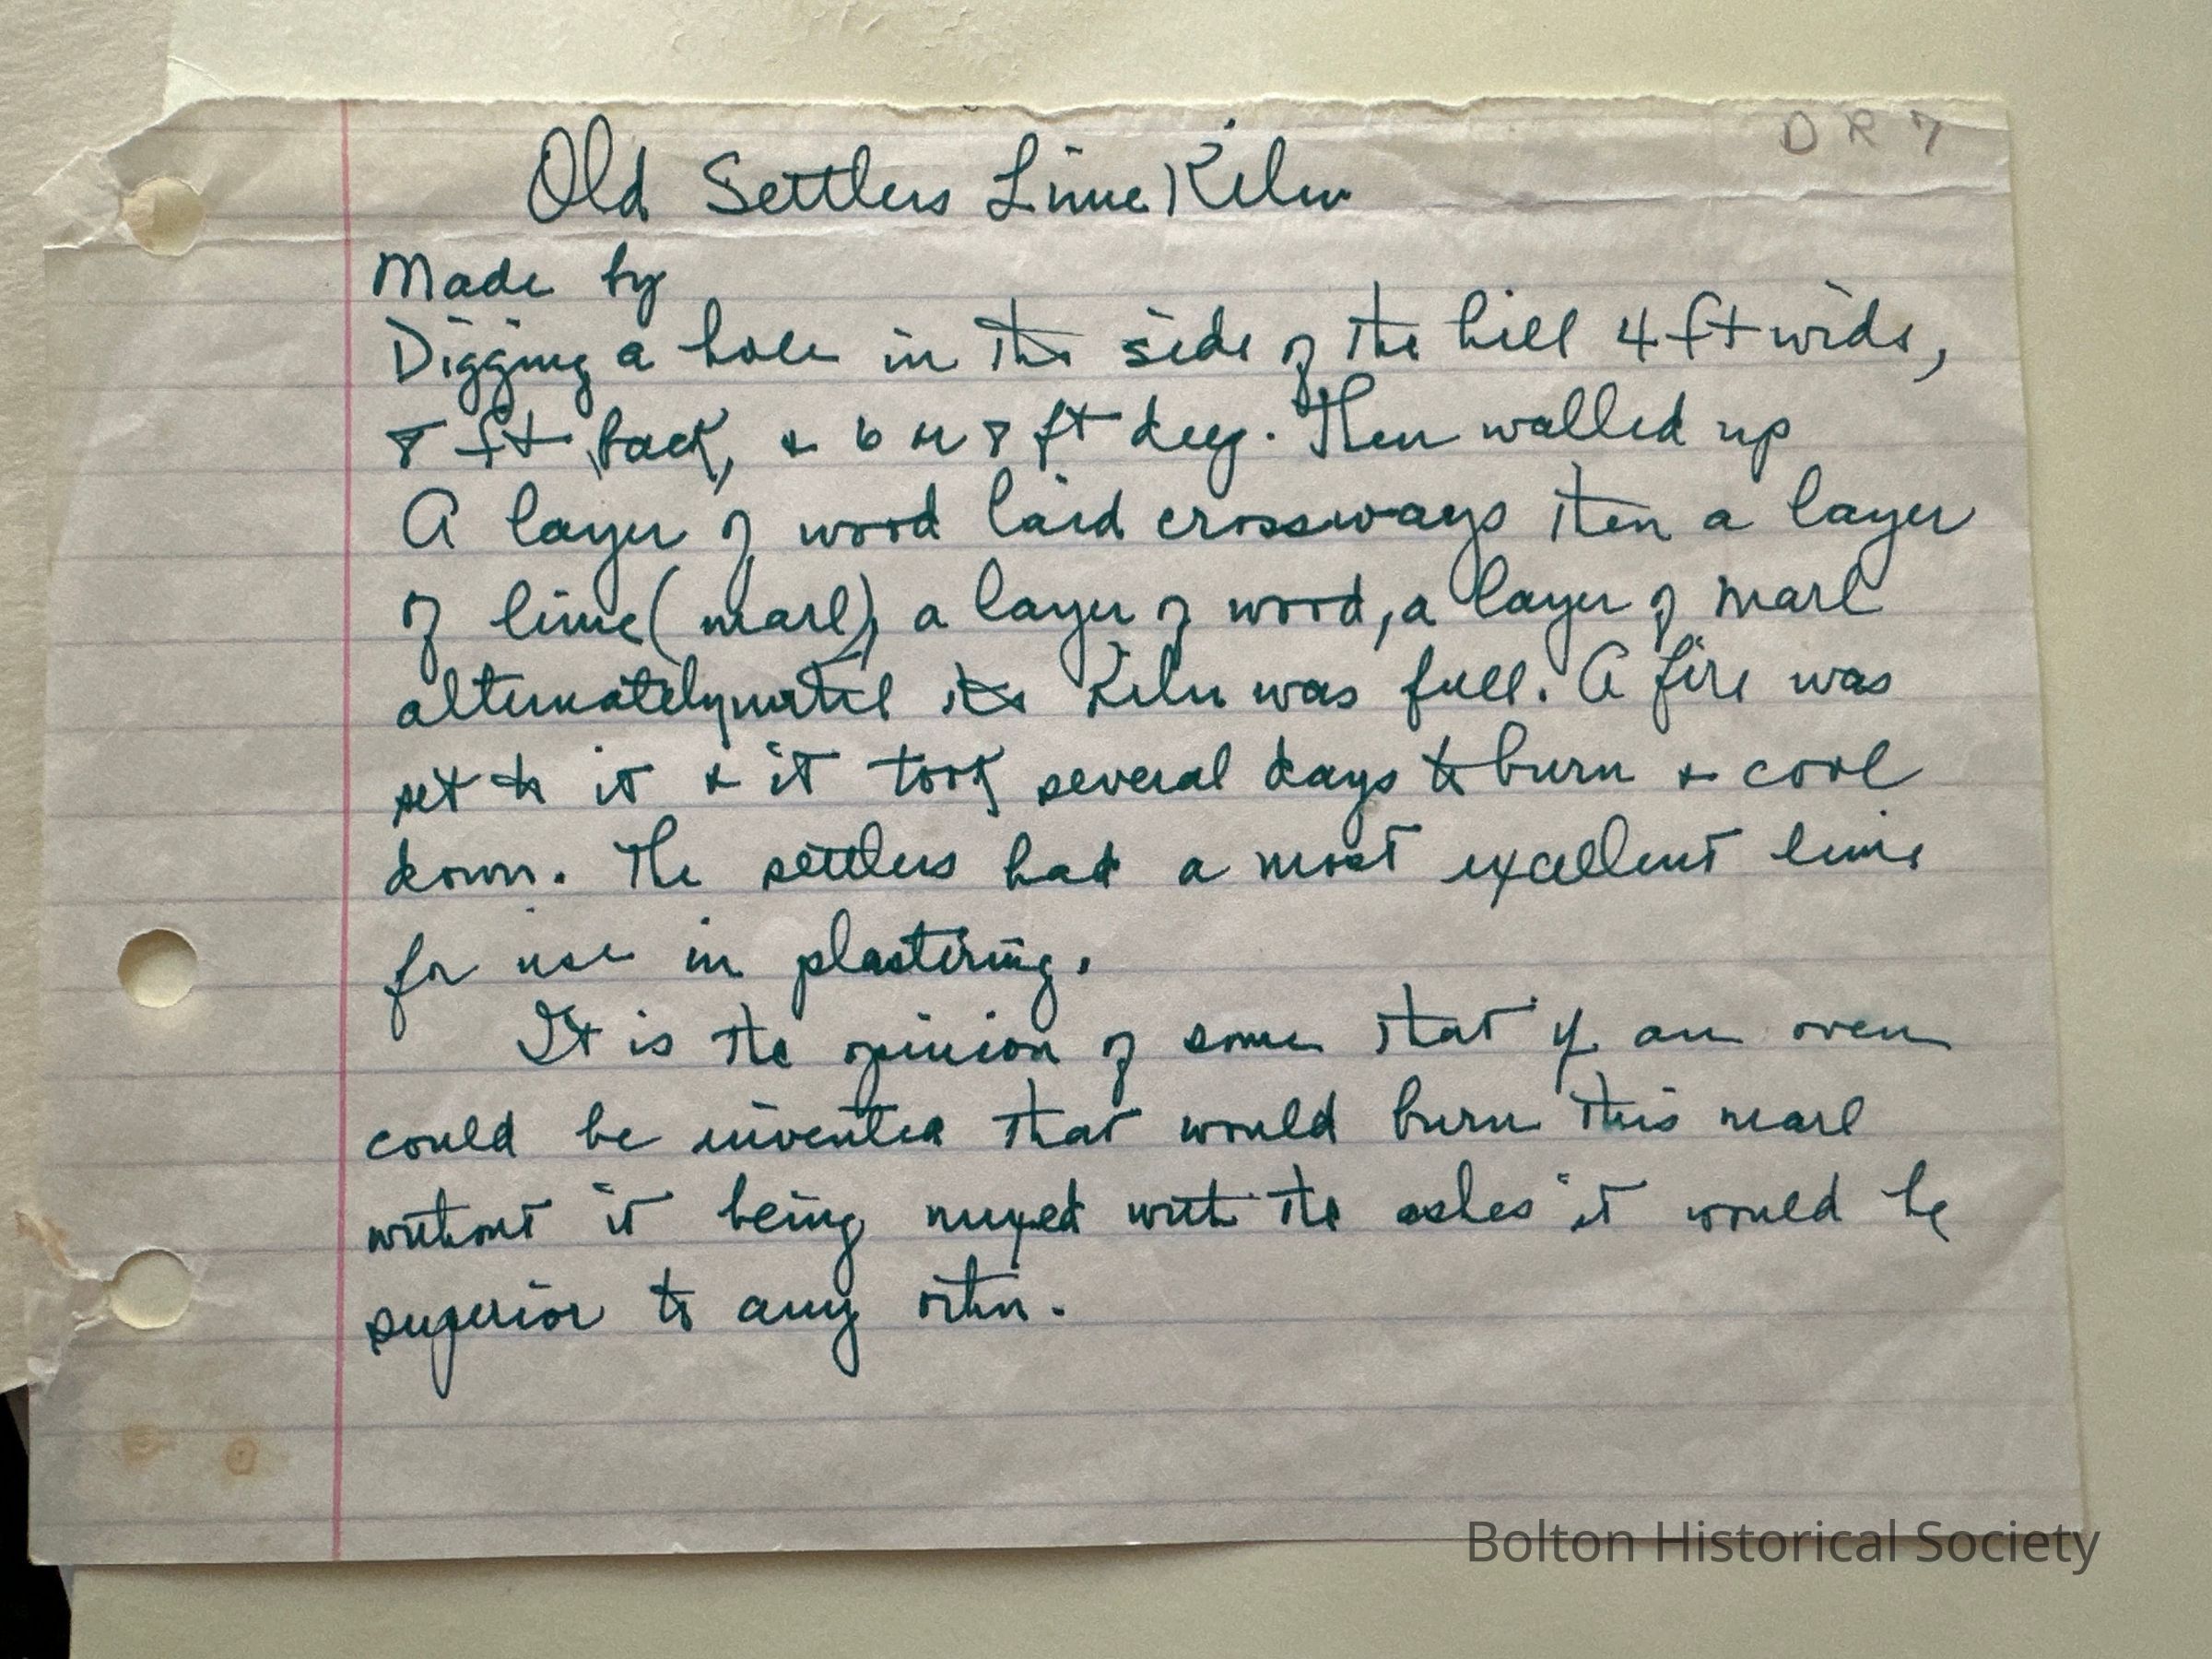 DR7
Old Settlers Lime Kiln
Made by
Digging a hole in the side of the hill 4 ft wide,
8 ft back, & 6 or 8 ft deep. Then walled up
A layer of wood laid crossways then a layer
of lime (marl), a layer of wood, a layer of marl
alternately until the Kiln was full. A fire was
set to it & it took several days to burn & cool
down. The settlers had a most excellent lime
for use in plastering.
It is the opinion of some that if an oven
could be invented that would burn this marl
without it being mixed with the ashes it would be
superior to any other.
Bolton Historical Society